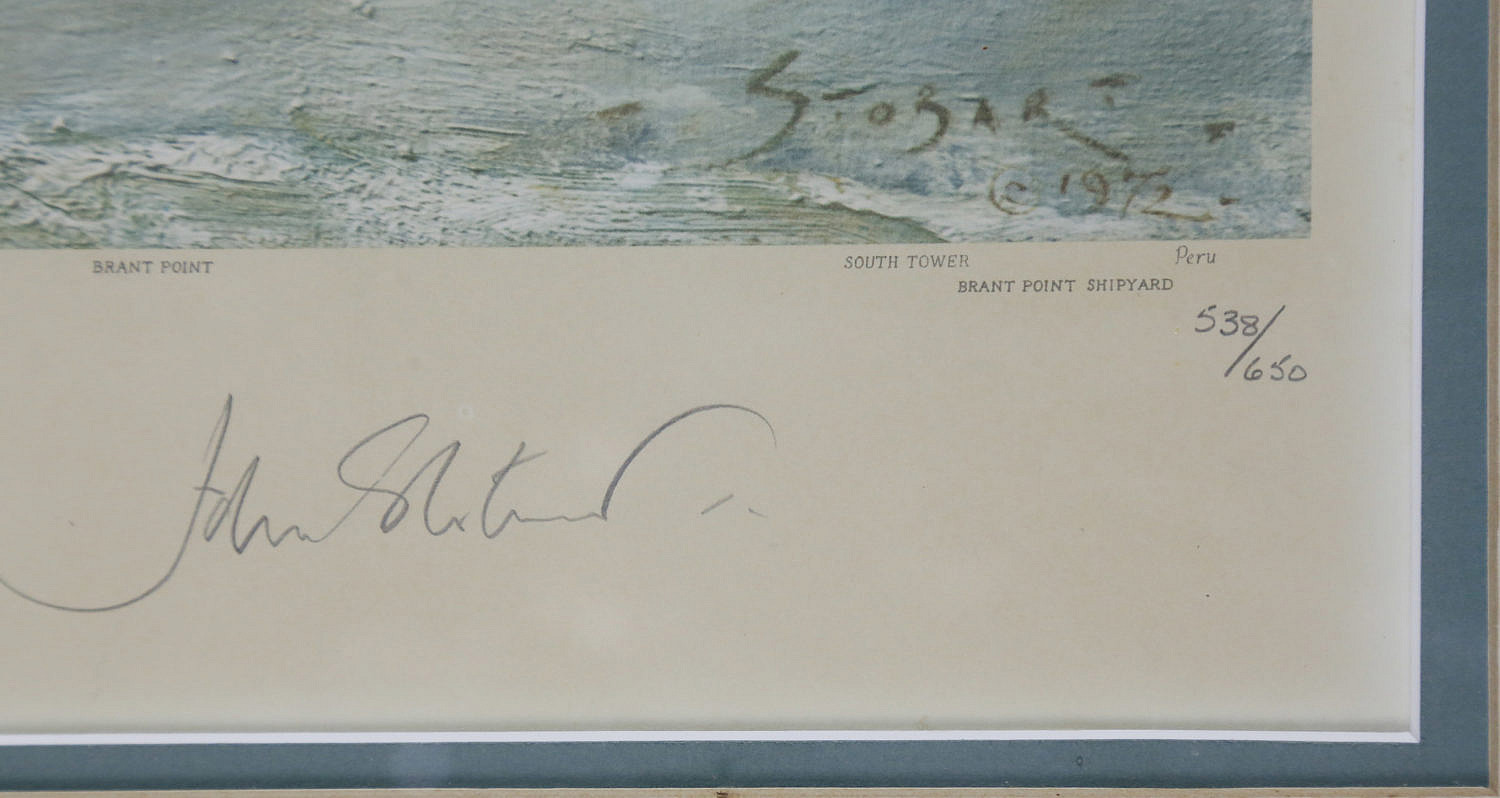 STOBART
© 1972
BRANT POINT
SOUTH TOWER
Peru
BRANT POINT SHIPYARD
538/650
John Stobart